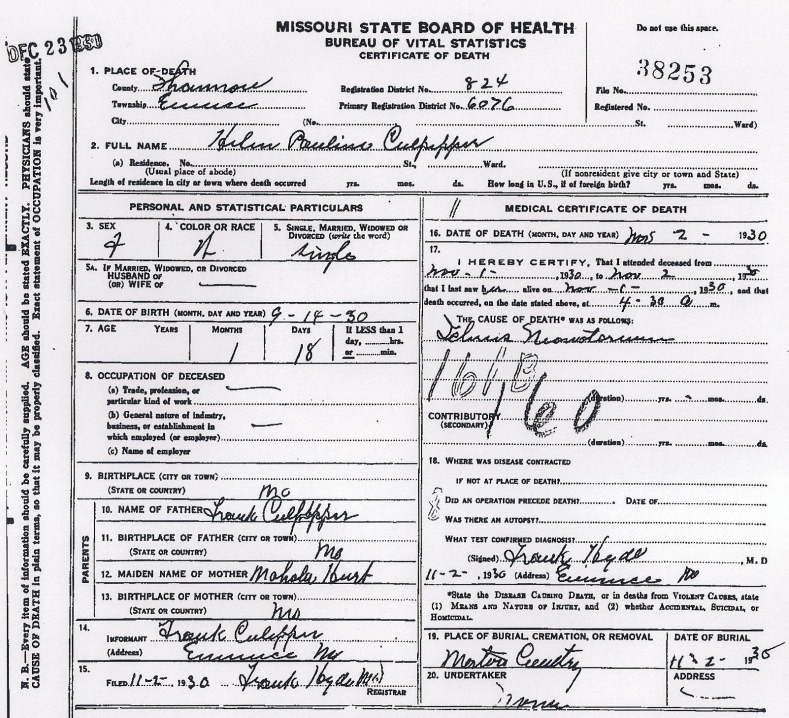 MISSOURI STATE BOARD OF HEALTH
BUREAU OF VITAL STATISTICS
CERTIFICATE OF DEATH
Do not use this space.
DEC 23 1930
1. PLACE OF DEATH
County Shannon Registration District No. 824 File No. 38253
Township Eminence Primary Registration District No. 6076 Registered No.
City (No. St. Ward)
2. FULL NAME Helen Pauline Culpepper
(a) Residence. No. St., Ward.
(Usual place of abode) (If nonresident give city or town and State)
Length of residence in city or town where death occurred yrs. mos. ds. How long in U.S., if of foreign birth? yrs. mos. ds.
PERSONAL AND STATISTICAL PARTICULARS
3. SEX 4. COLOR OR RACE 5. SINGLE, MARRIED, WIDOWED OR
DIVORCED (write the word)
F W single
5A. IF MARRIED, WIDOWED, OR DIVORCED
HUSBAND OF
(OR) WIFE OF
6. DATE OF BIRTH (MONTH, DAY AND YEAR) 9-14-30
7. AGE YEARS MONTHS DAYS If LESS than 1
day, hrs.
or min.
1 18
8. OCCUPATION OF DECEASED
(a) Trade, profession, or
particular kind of work
(b) General nature of industry,
business, or establishment in
which employed (or employer)
(c) Name of employer
9. BIRTHPLACE (CITY OR TOWN)
(STATE OR COUNTRY) Mo
PARENTS
10. NAME OF FATHER Frank Culpepper
11. BIRTHPLACE OF FATHER (CITY OR TOWN)
(STATE OR COUNTRY) Mo
12. MAIDEN NAME OF MOTHER Mahala Hurt
13. BIRTHPLACE OF MOTHER (CITY OR TOWN)
(STATE OR COUNTRY) Mo
14.
INFORMANT Frank Culpepper
(Address) Eminence Mo
15.
FILED 11-2-, 1930 Frank Hyde MD
REGISTRAR
MEDICAL CERTIFICATE OF DEATH
16. DATE OF DEATH (MONTH, DAY AND YEAR) Nov 2- 1930
17.
I HEREBY CERTIFY, That I attended deceased from
Nov-1-, 1930, to Nov 2, 1930
that I last saw her alive on Nov-1-, 1930, and that
death occurred, on the date stated above, at 4-30 a m.
THE CAUSE OF DEATH* WAS AS FOLLOWS:
(duration) yrs. mos. ds.
160
CONTRIBUTORY
(SECONDARY)
(duration) yrs. mos. ds.
18. WHERE WAS DISEASE CONTRACTED
IF NOT AT PLACE OF DEATH?
DID AN OPERATION PRECEDE DEATH? DATE OF
WAS THERE AN AUTOPSY?
WHAT TEST CONFIRMED DIAGNOSIS?
(Signed) Frank Hyde, M.D
11-2-, 1930 (Address) Eminence Mo
*State the DISEASE CAUSING DEATH, or in deaths from VIOLENT CAUSES, state
(1) MEANS AND NATURE OF INJURY, and (2) whether ACCIDENTAL, SUICIDAL, or
HOMICIDAL.
19. PLACE OF BURIAL, CREMATION, OR REMOVAL DATE OF BURIAL
11-2- 1930
20. UNDERTAKER ADDRESS
None
N. B.—Every item of information should be carefully supplied. AGE should be stated EXACTLY. PHYSICIANS should state
CAUSE OF DEATH in plain terms, so that it may be properly classified. Exact statement of OCCUPATION is very important.